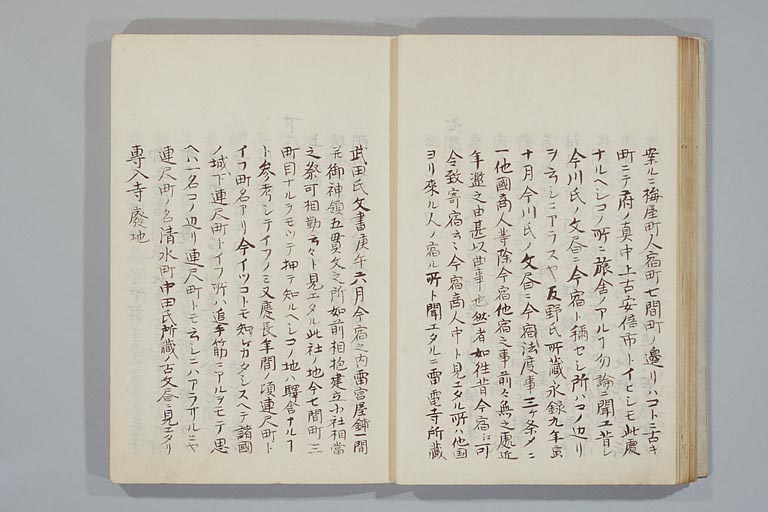 案ルニ梅屋町人宿町七間町ノ邊リハコトニ古キ
町ニテ府ノ真中上古安倍市トイヒシモ此處
ナルヘシコノ所ニ旅舎ノアルハ勿論ニ聞エ昔シ
今川氏ノ文書ニ今宿ト稱セシ所ハコノ辺リ
ヲ云シニアラスヤ友野氏所蔵永録九年寅
十月今川氏ノ文書ニ今宿法度事三ヶ条ノニ
一他國商人等除今宿他宿之事前々無之處近
年濫之由甚以曲事也然者如徃昔今宿江可
令致寄宿云々今宿商人中ト見エタル所ハ他国
ヨリ來ル人ノ宿ル所ト聞エタルニ雷電寺所蔵
武田氏文書庚午六月今宿之内雷宮屋鋪一間
并御神領五貫文之所如前相抱建立小社相當
之祭可相勤云々ト見エタル此社ノ地今七間町三
町目ナルヲモツテ押テ知ルヘシコノ地ハ驛舎ナルコ
ト参考シテイフノミ又慶長年間ノ頃連尺町ト
イフ町名アリ今イツコトモ知レカタシスヘテ諸國
ノ城下連尺町トイフ所ハ追手筋ニアルヲモテ思
ヘハ一名コノ辺リ連尺町トモ云シニハアラサルニヤ
連尺町ノ名清水町中田氏所蔵古文書ニ見エタリ
専入寺廢地